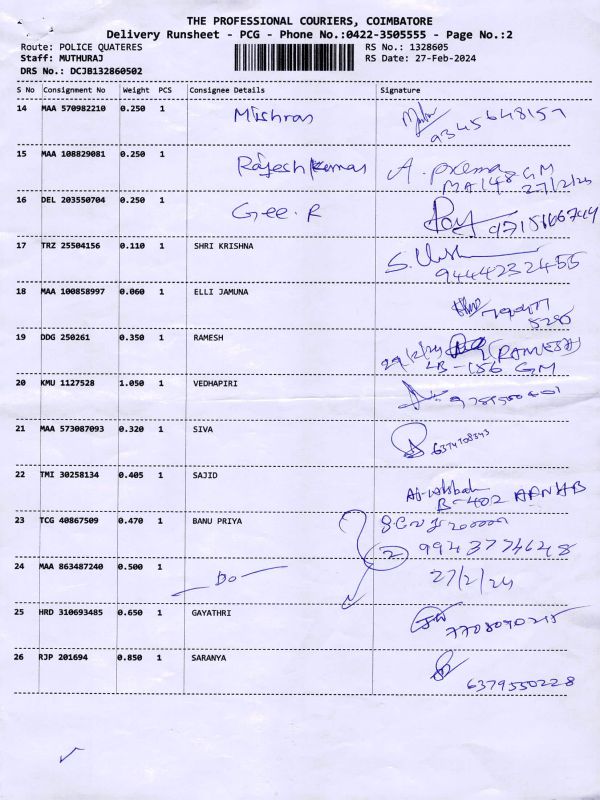 THE PROFESSIONAL COURIERS, COIMBATORE
Delivery Runsheet - PCG - Phone No.:0422-3505555 - Page No.:2
Route: POLICE QUATERES RS No.: 1328605
Staff: MUTHURAJ RS Date: 27-Feb-2024
DRS No.: DCJB132860502
S No Consignment No Weight PCS Consignee Details Signature
14 MAA 570982210 0.250 1 Mishran 9345648157
15 MAA 108829081 0.250 1 Rajesh Kumar A. Prema
MA/48 GM
27/2/24
16 DEL 203550704 0.250 1 Gee. R
17 TRZ 25504156 0.110 1 SHRI KRISHNA
9444232455
18 MAA 100858997 0.060 1 ELLI JAMUNA
5290
19 DDG 250261 0.350 1 RAMESH 29/2/24 (RAMESH)
LB-156 GM
20 KMU 1127528 1.050 1 VEDHAPIRI
21 MAA 573087093 0.320 1 SIVA 6374708343
22 TMI 30258134 0.405 1 SAJID
B-402
23 TCG 40867509 0.470 1 BANU PRIYA
2 9943774648
24 MAA 863487240 0.500 1 Do 27/2/24
25 HRD 310693485 0.650 1 GAYATHRI 7708090215
26 RJP 201694 0.850 1 SARANYA 6379550228